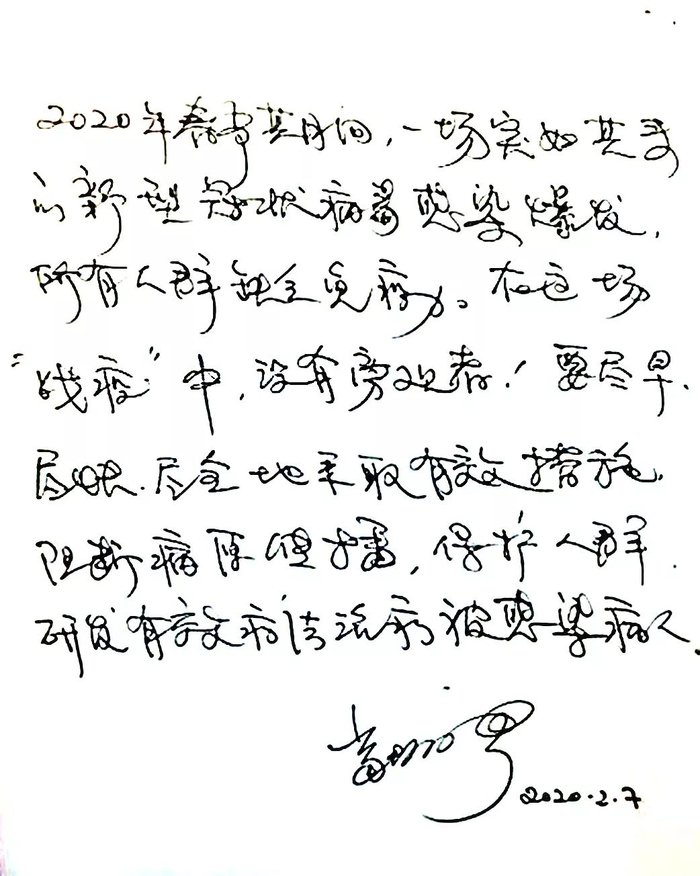 2020年春节其间，一场突如其来
的新型冠状病毒感染爆发，
所有人群缺乏免疫力。在这场
“战疫”中，没有旁观者！要尽早、
尽快、尽全地采取有效措施，
阻断病原传播，保护人群，
研发有效疗法治疗被感染病人。
2020.2.7